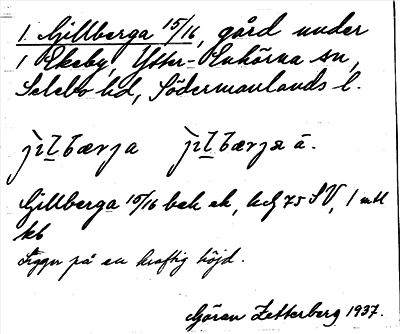 1. Gillberga 15/16, gård under
1 Ekeby, Ytter-Enhörna sn,
Selebo hd, Södermanlands l.
Gillberga 15/16 bek ek, kdj 75 SV, 1 mtl
kb
Ligger på en kraftig höjd.
Göran Zetterberg 1937.